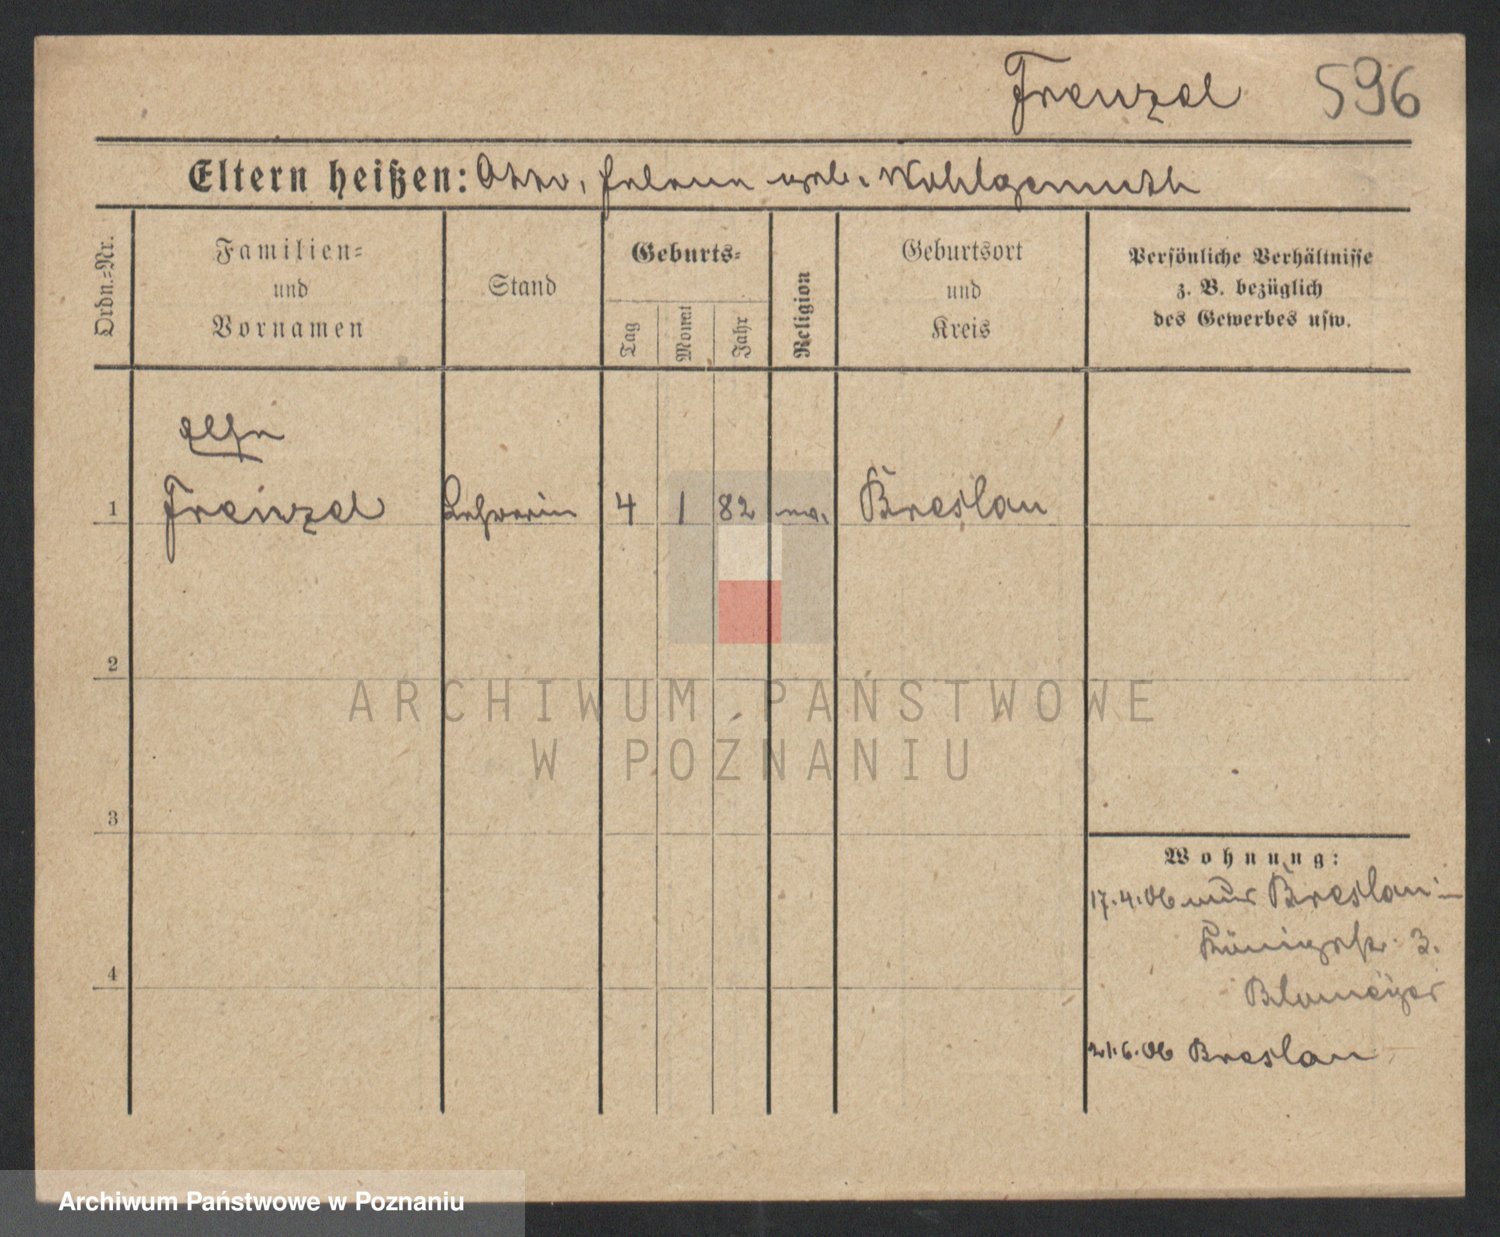 Frenzel 596
Eltern heißen: Otto, Helene geb. Wohlgemuth
Ordn.=Nr.
Familien=
und
Vornamen
Stand
Geburts=
Tag
Monat
Jahr
Religion
Geburtsort
und
Kreis
Persönliche Verhältnisse
z. B. bezüglich
des Gewerbes usw.
1 Frenzel Lehrerin 4 1 82 ev. Breslau
2
ARCHIWUM PAŃSTWOWE
W POZNANIU
3
4
Wohnung:
17.4.06 Breslau
Königstr. 3.
21.6.06 Breslau
Archiwum Państwowe w Poznaniu